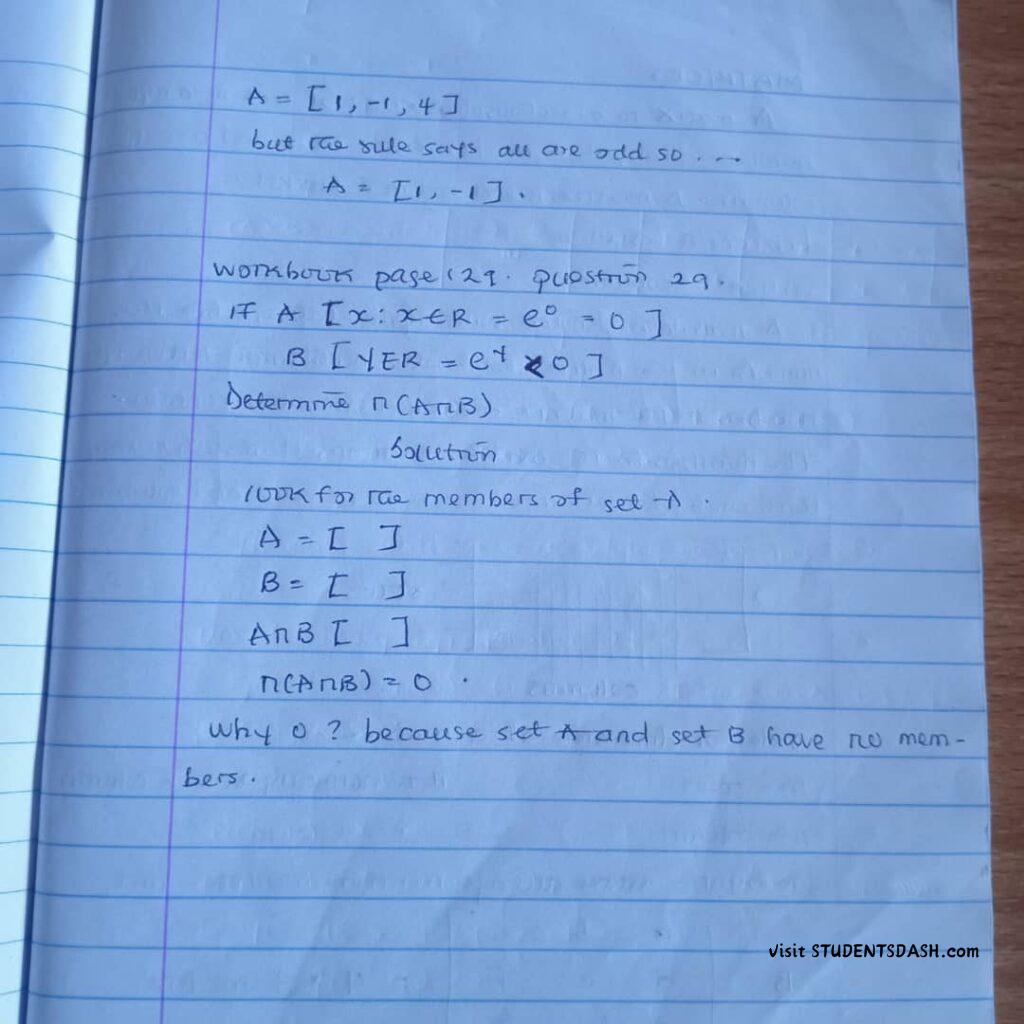 A = [1, -1, 4]
but the rule says all are odd so ...
A = [1, -1].
workbook page 129. question 29.
If A [x: x∈R = e⁰ = 0 ]
B [ Y∈R = eʸ < 0 ]
Determine n(A∩B)
Solution
look for the members of set A.
A = [ ]
B = [ ]
A∩B [ ]
n(A∩B) = 0 .
Why 0 ? because set A and set B have no mem-
bers.
visit STUDENTSDASH.com